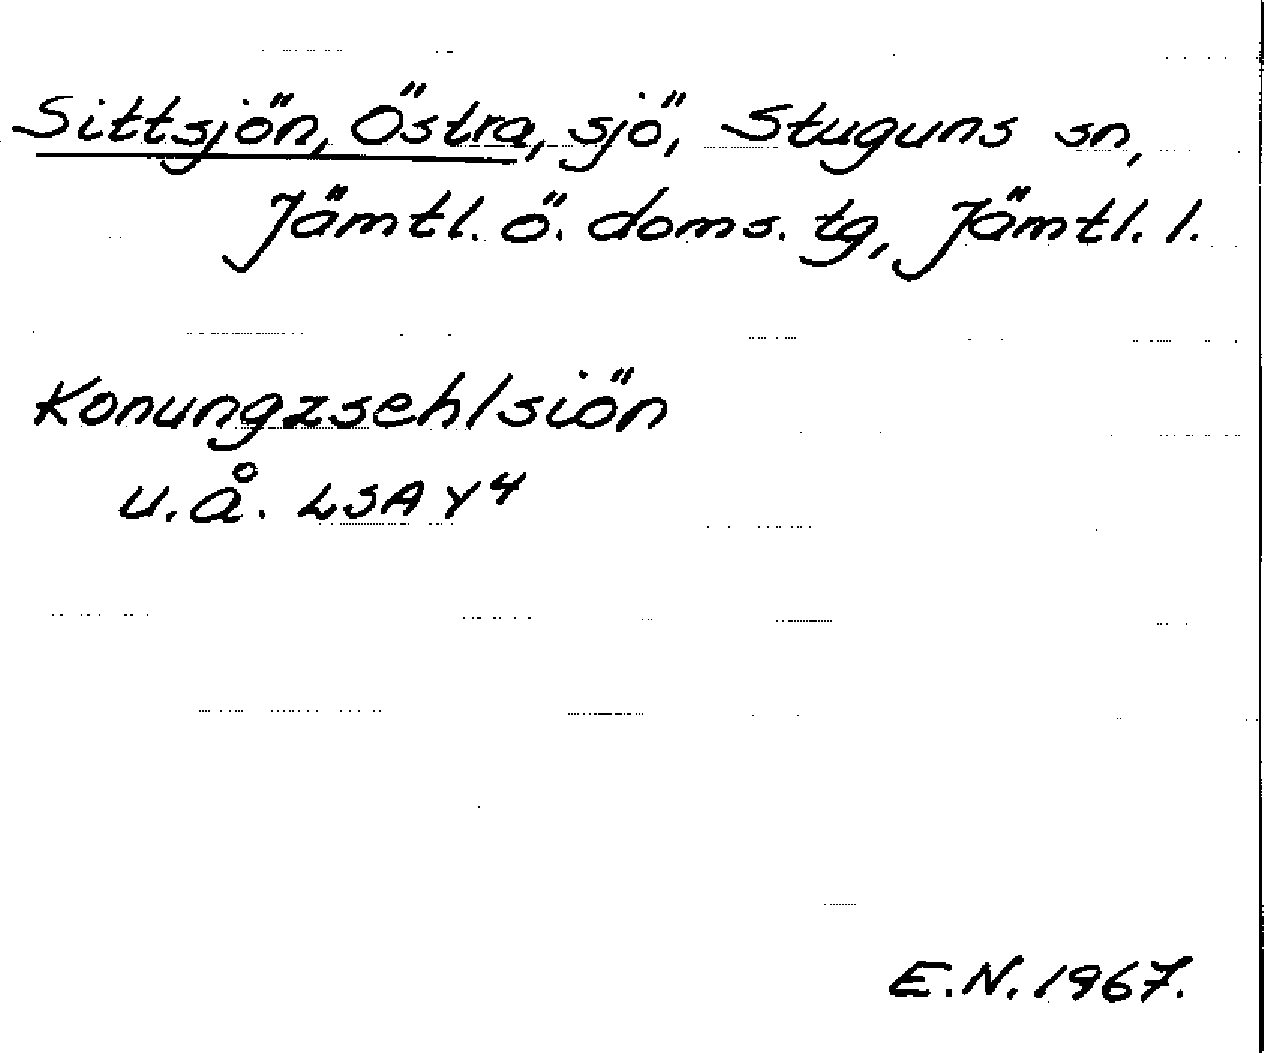 Sittsjön, Östra, sjö, Stuguns sn,
Jämtl. ö. doms. tg, Jämtl. l.
Konungzsehlsiön
u.å. LSA Y4
E.N. 1967.